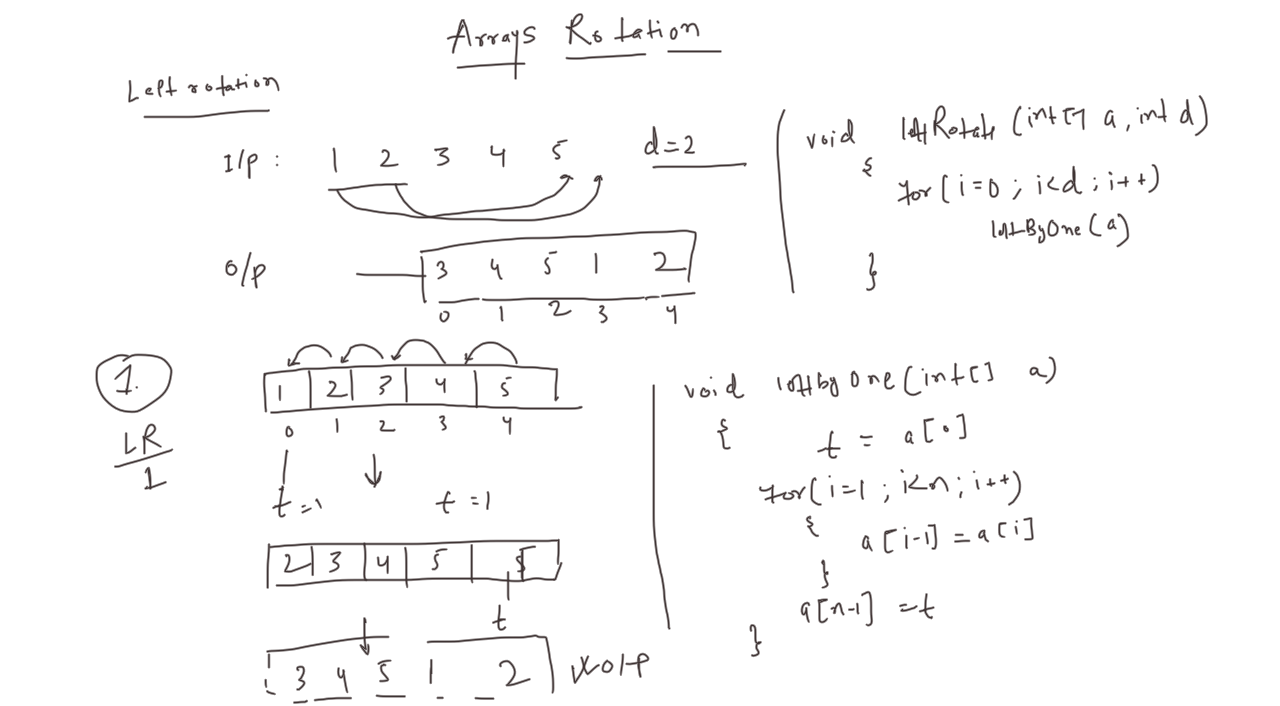 Arrays Rotation
Left rotation
I/p : 1 2 3 4 5 d=2
o/p 3 4 5 1 2
0 1 2 3 4
void leftRotate (int[] a, int d)
{
for (i=0 ; i<d ; i++)
leftByOne (a)
}
1.
LR/1
1 2 3 4 5
0 1 2 3 4
t=1 t=1
2 3 4 5
t
3 4 5 1 2 o/p
void leftby One (int[] a)
{ t = a[0]
for(i=1 ; i<n ; i++)
{ a[i-1] = a[i]
}
a[n-1] =t
}